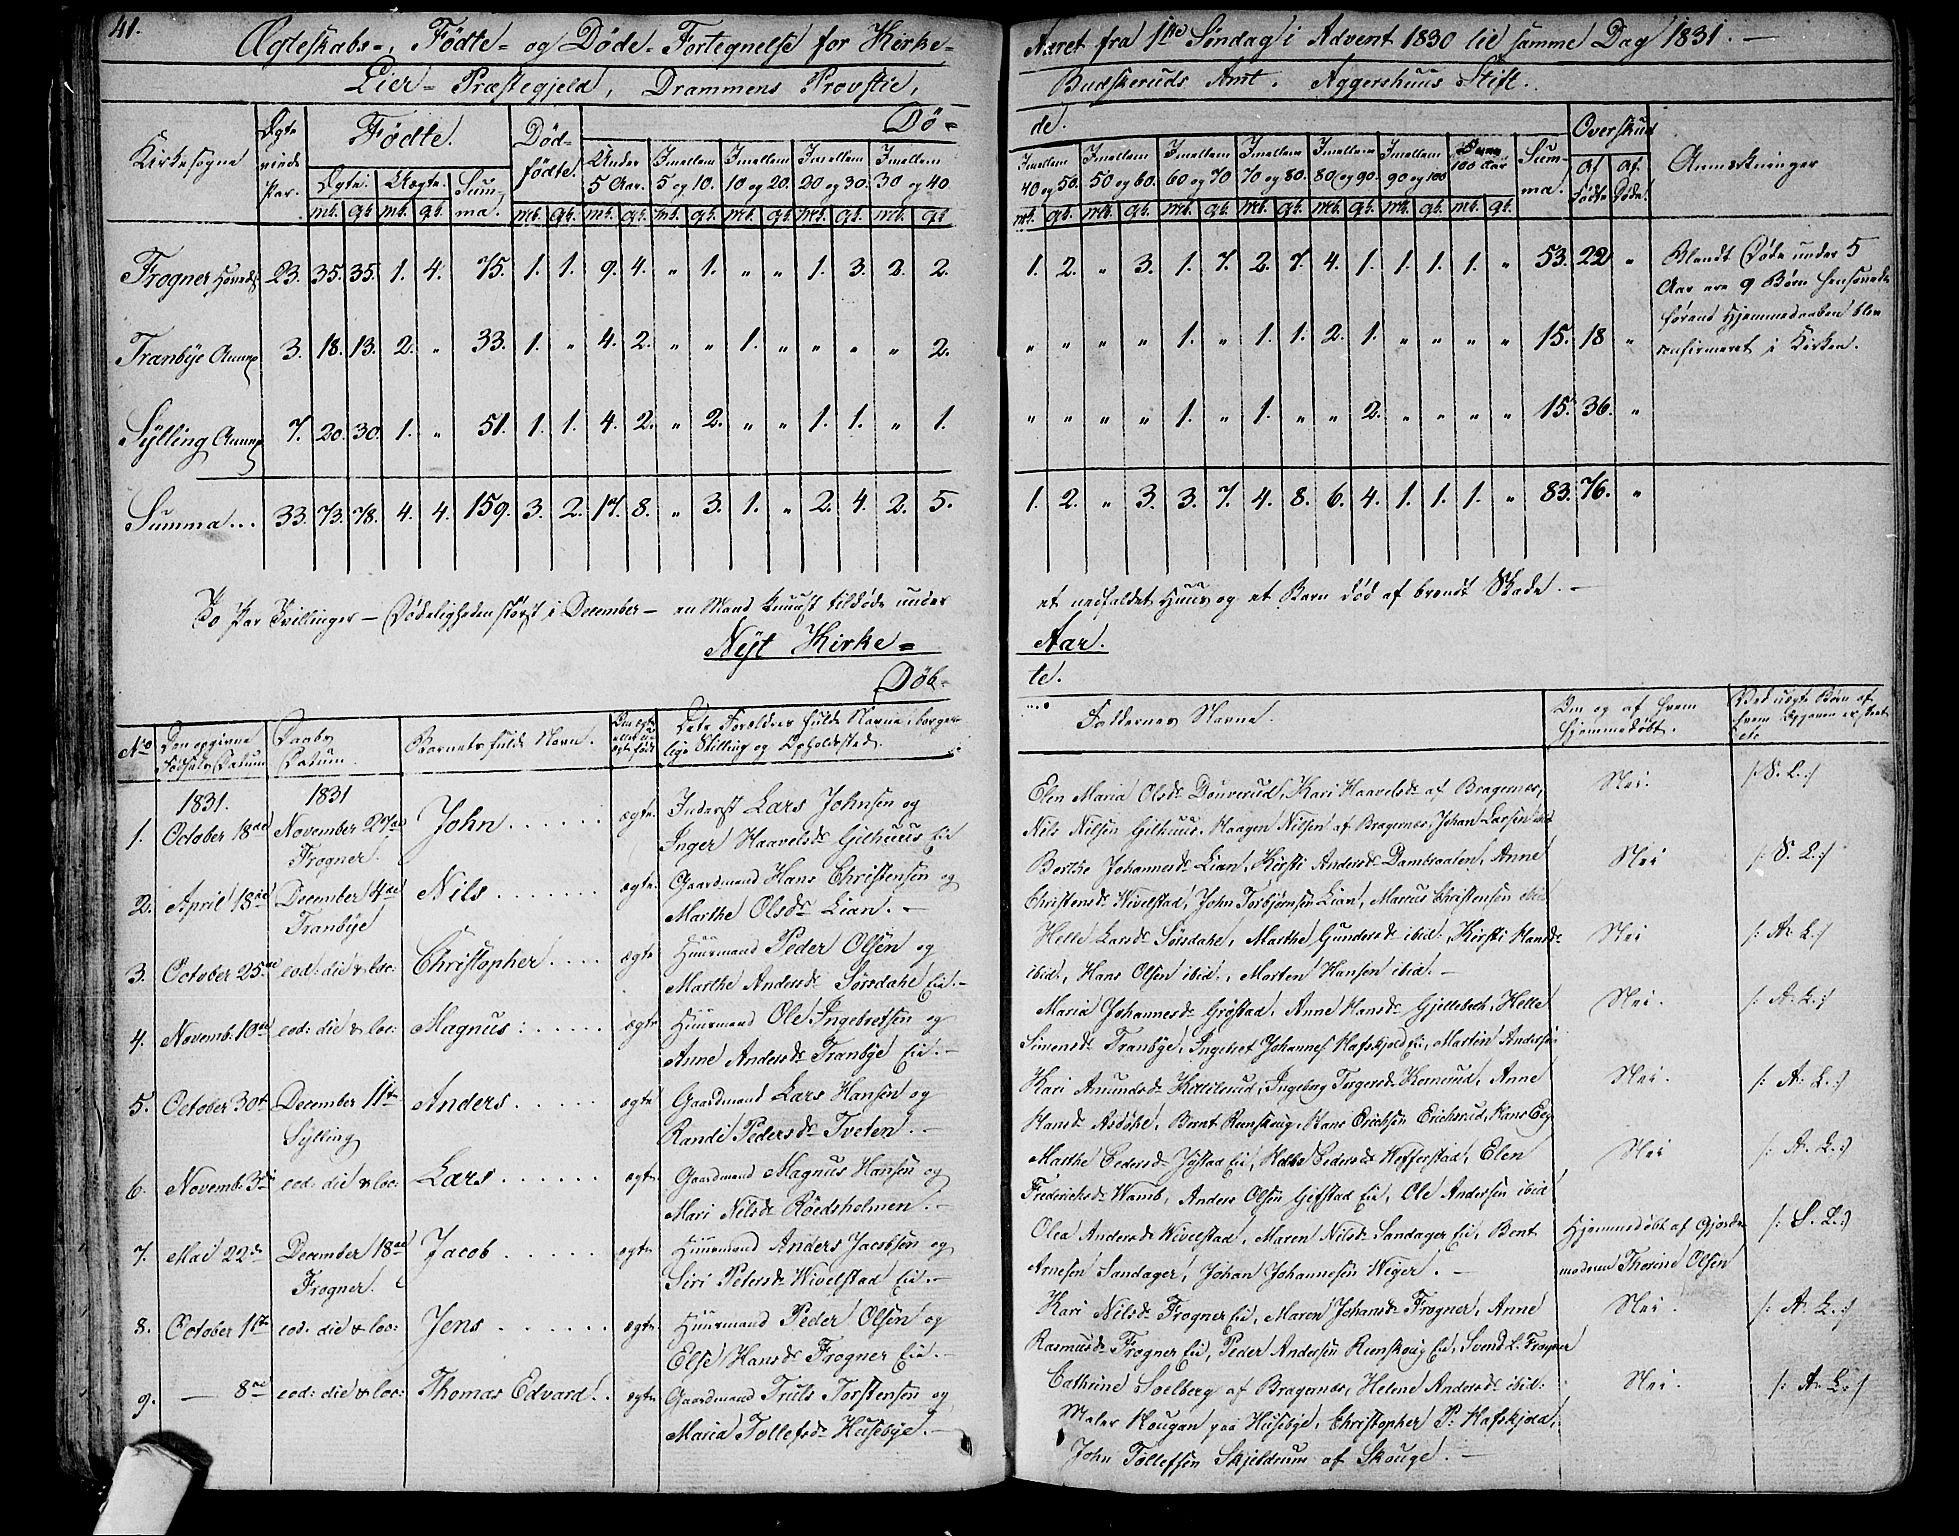 41.
Ægteskabs-, Fødte- og Døde-Fortegnelse for Kirke-
Aaret fra 1ste Søndag i Advent 1830 til samme Dag 1831. —
Lier-Præstegjeld, Drammens Provstie,
Budskeruds Amt. Aggershuus Stift.
Kirkesogne
Ægte viede Par.
Fødte.
Ægte. Uægte. Summa.
Død-fødte.
Dø-
de.
Under 5 Aar. Imellem 5 og 10. Imellem 10 og 20. Imellem 20 og 30. Imellem 30 og 40.
Imellem 40 og 50. Imellem 50 og 60. Imellem 60 og 70 Imellem 70 og 80. Imellem 80 og 90. Imellem 90 og 100 100 Aar Summa.
Overskud
af Fødte af Døde.
Anmærkninger
mk. qk. mk. qk. mk. qk. mk. qk. mk. qk. mk. qk. mk. qk. mk. qk.
mk. qk. mk. qk. mk. qk. mk. qk. mk. qk. mk. qk. mk. qk.
Frogner Hoveds 23. 35. 35. 1. 4. 75. 1. 1. 9. 4. " 1. " " 1. 3. 2. 2.
1. 2. " 3. 1. 7. 2. 7. 4. 1. 1. 1. 1. " 53. 22 "
Tranbye Annex 3. 18. 13. 2. " 33. 1. " 4. 2. " " 1. " " " " 2.
" " " " 1. " 1. 1. 2. 1. " " " " 15. 18 "
Sylling Annex 7. 20. 30. 1. " 51. 1. 1. 4. 2. " 2. " " 1. 1. " 1.
" " " " 1. " 1. " " 2. " " " " 15. 36. "
Summa... 33. 73. 78. 4. 4. 159. 3. 2. 17. 8. " 3. 1. " 2. 4. 2. 5.
1. 2. " 3. 3. 7. 4. 8. 6. 4. 1. 1. 1. " 83. 76. "
Blandt Døde under 5
Aar ere 9 Børn hensovede
førend Hjemmedaaben blev
confirmeret i Kirken.
To Par Tvillinger — Dødeligheden størst i December — en Mand knust tildøde under
et nedfaldet Huus og et Barn død af brendt Skade. —
Nyt Kirke-
Aar.
Døb-
te.
No Den opgivne Fødsels Datum Daabs Datum. Barnets fulde Navn. Om ægte eller uægte født Dets Forældres fulde Navne, borgerlige Stilling og Opholdssted.
Faddernes Navne. Om og af hvem hjemmedøbt. Ved uægte Børn af hvem Opgaven er skeet etc
1831. 1831
1. October 18de November 27de Frogner. John...... ægte. Inderst Lars Johnsen og
Inger Haavelsdr Gilhuus Eie
Elen Maria Olsdr Douverud, Kari Haavelsdr af Bragernæs, Nei. /: S. L.:/
Nils Nilsen Gilhuus, Haagen Nilsen af Bragernæs, Johan Larsen ibid
2. April 18de December 4de Tranbye Nils....... ægte. Gaardmand Hans Christensen og
Marthe Olsdr Lian. —
Berthe Johannesdr Lian, Kirsti Andersdr Dambraaten, Anne Nei /: S. L.:/
Christensdr Wivelstad, John Torbjørnsen Lian, Marcus Christensen ibid
3. October 25de eod: die & loc: Christopher.... ægte. Huusmand Peder Olsen og
Marthe Andersdr Sørsdahl Eie. —
Helle Larsdr Sørsdahl, Marthe Gundersdr ibid:, Kirsti Hansdr Nei /: A. L.:/
ibid:, Hans Olsen ibid:, Morten Hansen ibid: —
4. Novemb. 10de eod: die & loc: Magnus:..... ægte Huusmand Ole Ingebretsen og
Anne Andersdr Tranbye Eie. —
Maria Johannesdr Grøstad, Anne Hansdr Gjellebech, Helle Nei. /: A. L.:/
Simensdr Tranbye, Ingebret Johannes: Hafskjold Eie, Martin Andersen
5. October 30te December 11te Sylling Anders...... ægte Gaardmand Lars Hansen og
Randi Pedersdr Tveten. —
Kari Amundsdr Kittilsrud, Ingeborg Torgersdr Kornerud, Anne Nei. /: A. L.:/
Hansdr Asdøhl, Bernt Renskoug, Hans Erichsen Erichsrud, Hans Eeg
6. Novemb. 3de eod: die & loc: Lars....... ægte. Gaardmand Magnus Hansen og
Mari Nilsdr Røedsholmen. —
Marthe Pedersdr Jystad Eie, Helle Pedersdr Hofferstad, Elen Nei /: A. L.:/
Frederichsdr Wamb, Anders Olsen Gifstad Eie, Ole Andersen ibid
7. Mai 22de December 18de Frogner. Jacob...... ægte. Huusmand Anders Jacobsen og
Siri Petersdr Wivelstad Eie. —
Olea Andersdr Wivelstad, Maren Nilsdr Sandager Eie, Bent Hjemmedøbt af Gjorde- /: S. L.:/
Arnesen Sandager, Johan Johannesen Weger. — moderen Thorine Olsen
8. October 11te eod: die & loc: Jens....... ægte. Huusmand Peder Olsen og
Else Hansdr Frogner Eie. —
Kari Nilsdr Frogner Eie, Maren Johansdr Frogner, Anne Nei. /: A. L.:/
Rasmusdr Frogner Eie, Peder Andersen Renskoug Eie, Svend L. Frogner
9. — 8de eod: die & loc: Thomas Edvard. . ægte. Gaardmand Truls Torstensen og
Maria Tollefsdr Husebye. —
Cathrine Soelberg af Bragernæs, Helene Andersdr ibid: Nei. /: A. L.:/
Maler Hougan paa Husebye, Christopher P: Hafskjold,
John Tollefsen Skjeldrum af Skouge. —